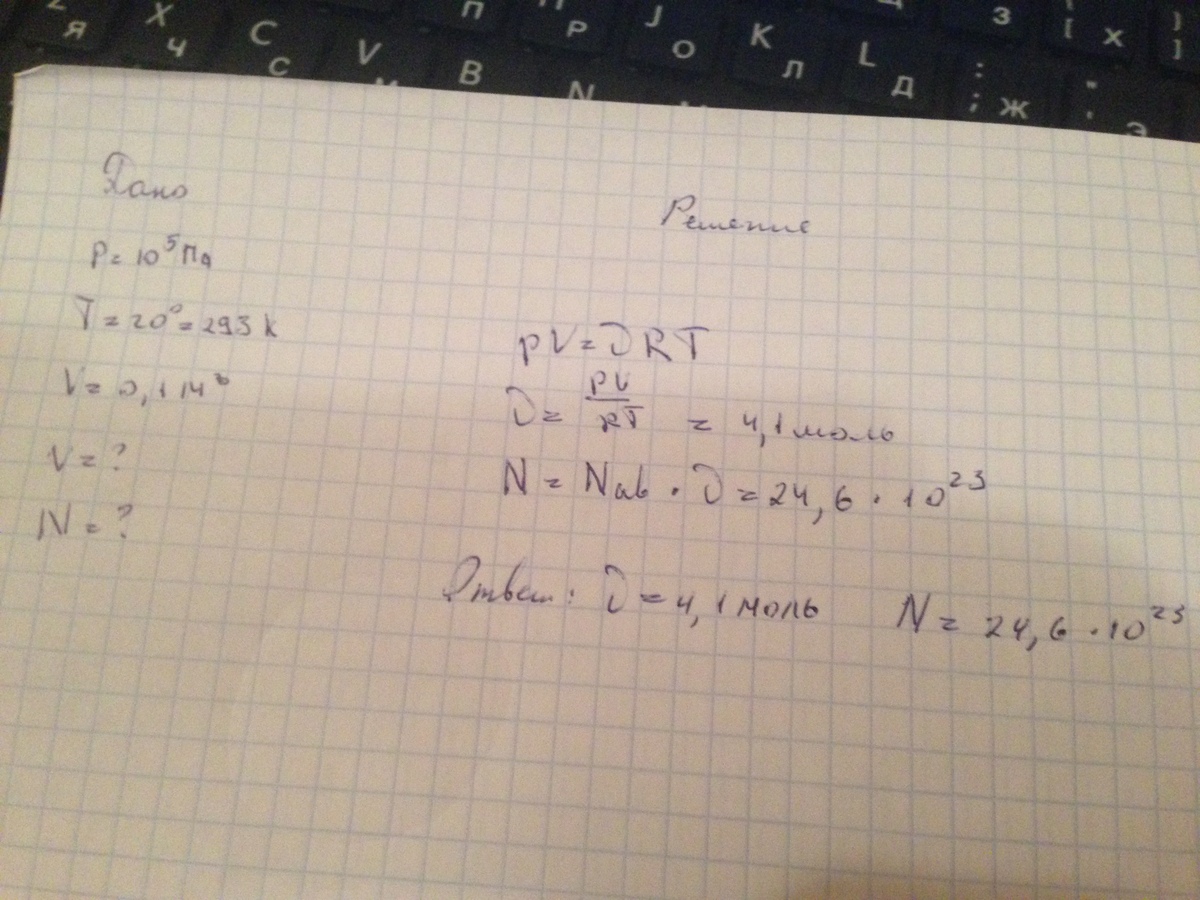 Z Я
X Ч
C С
V
B
N
П
Р
J О
K Л
L Д
З
: ; Ж
[ { Х
" ' Э
] }
Дано
Решение
P = 10⁵ Па
T = 20° = 293 K
V = 0,1 м³
ν = ?
N = ?
pV = ν R T
ν = pV / RT = 4,1 моль
N = Nав · ν = 24,6 · 10²³
Ответ: ν = 4,1 моль N = 24,6 · 10²³